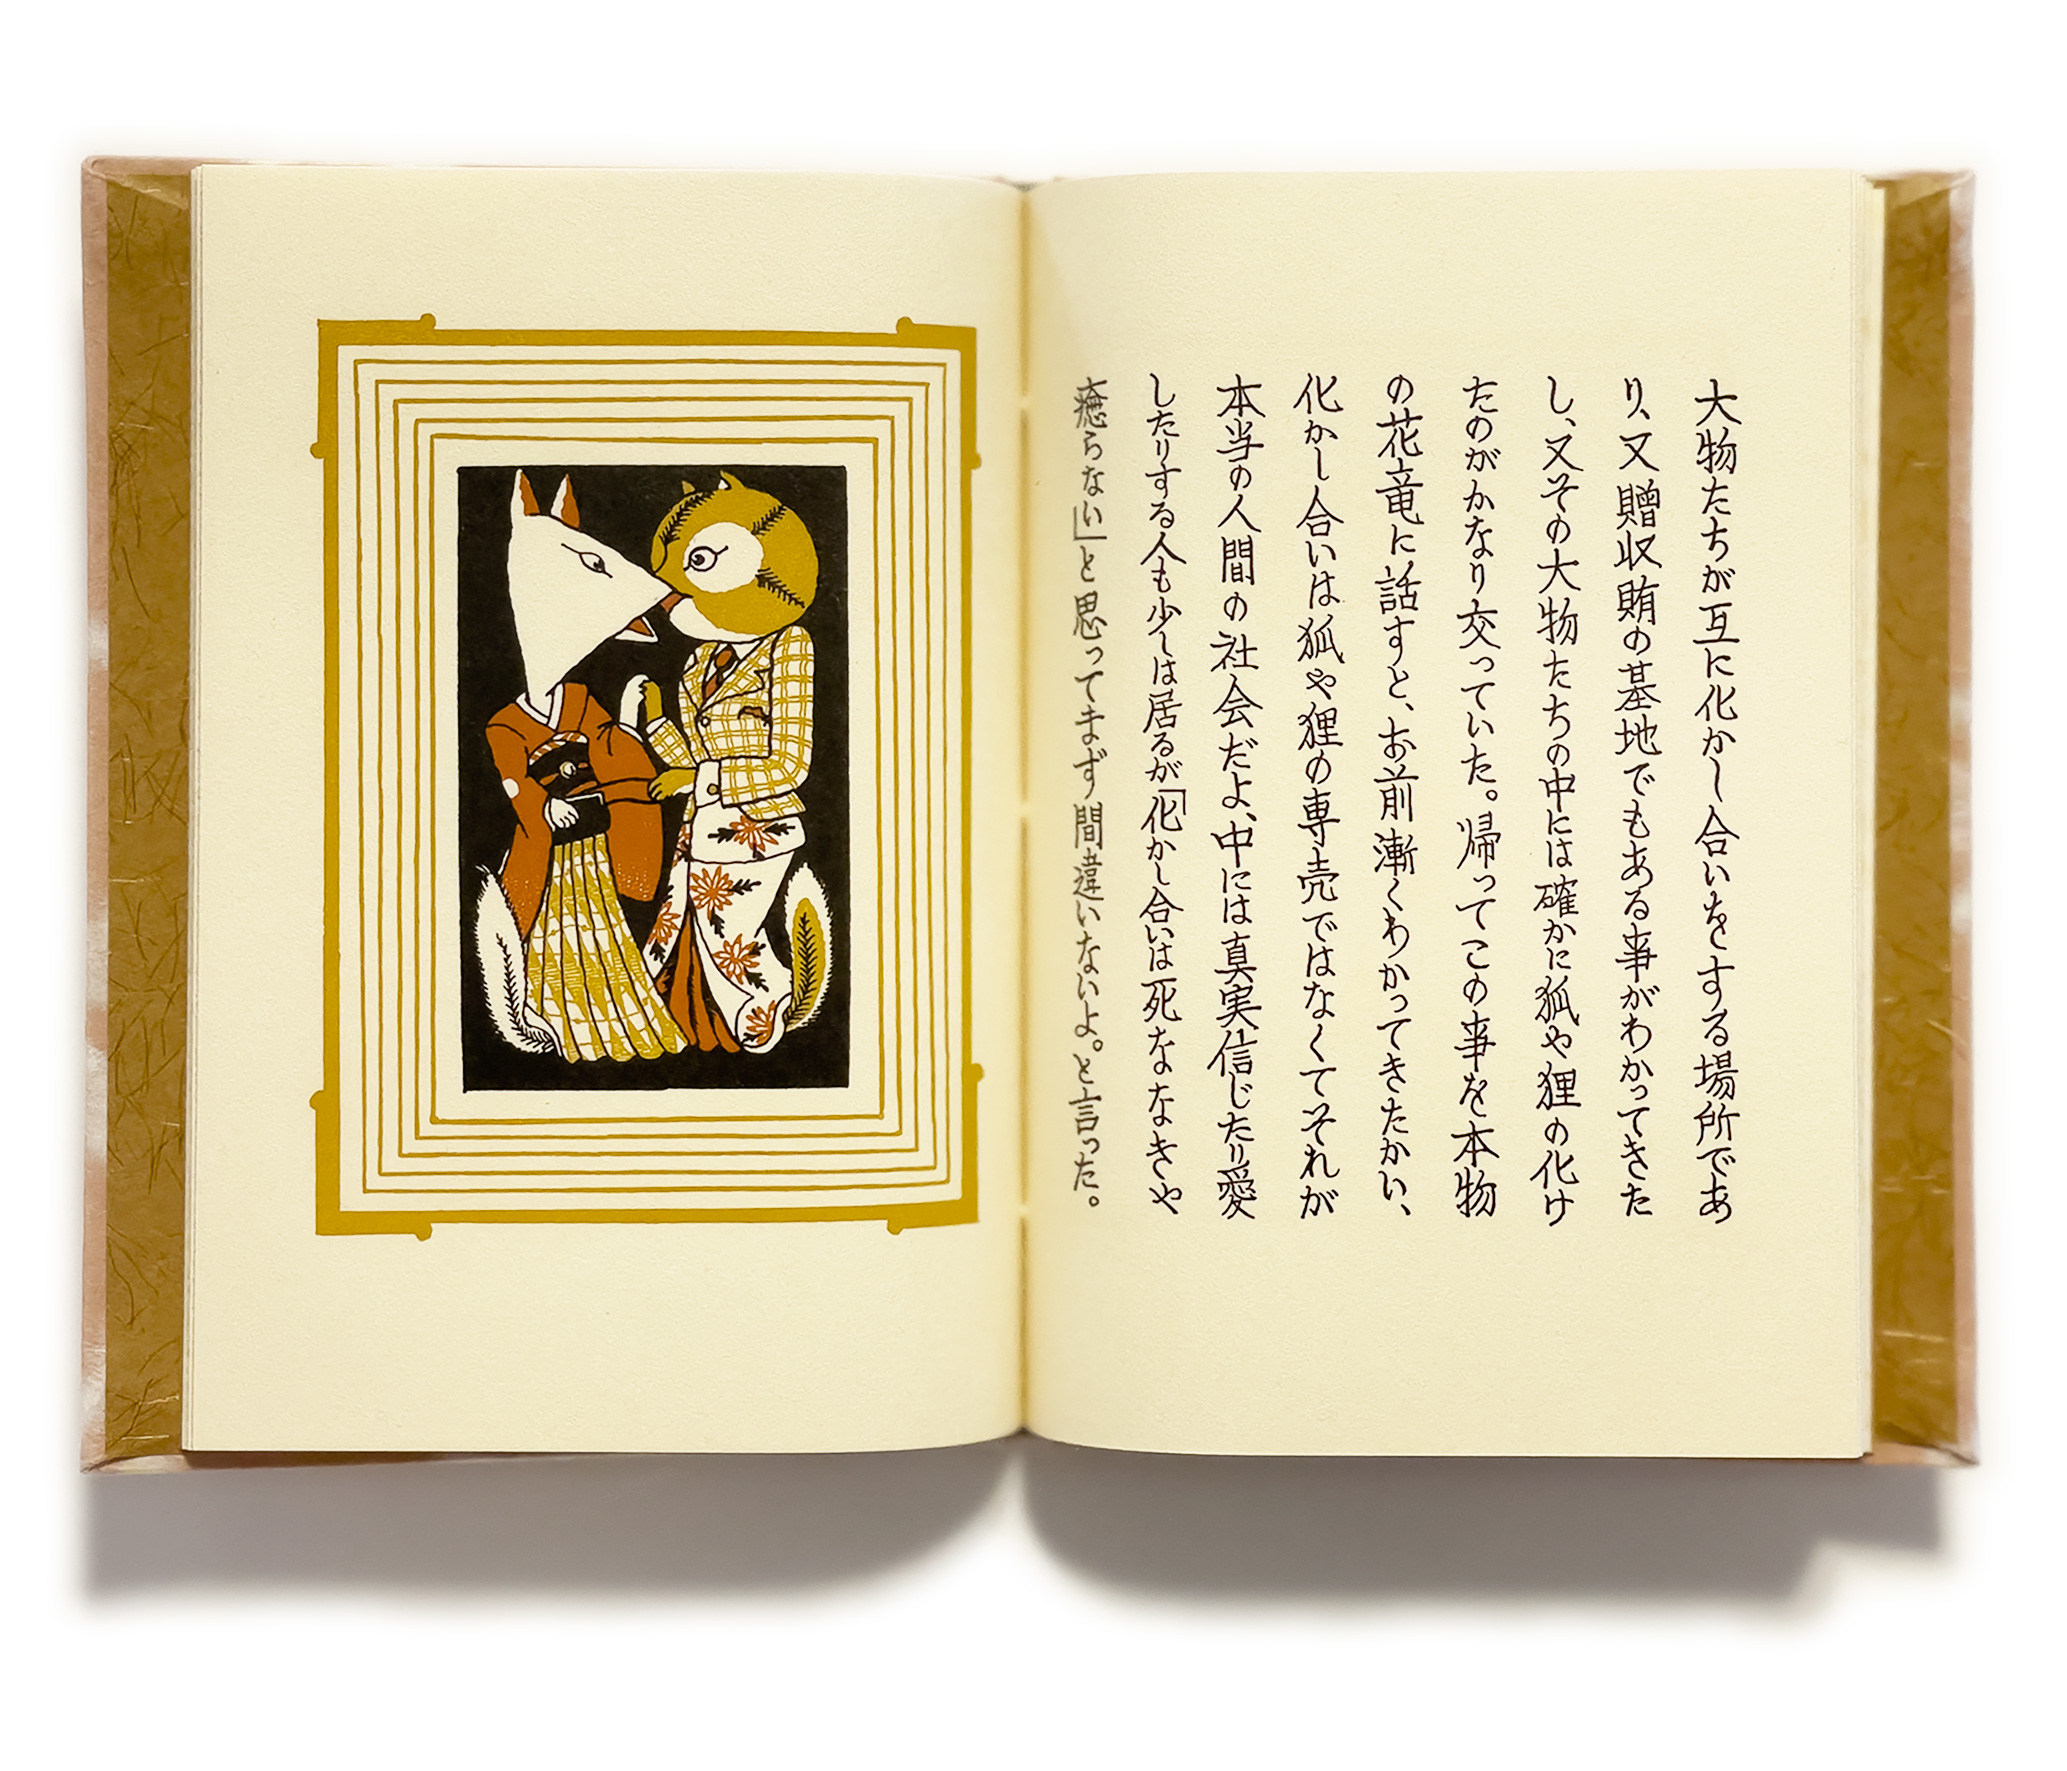 大物たちが互に化かし合いをする場所であ
り、又贈収賄の基地でもある事がわかってきた
し、又その大物たちの中には確かに狐や狸の化け
たのがかなり交っていた。帰ってこの事を本物
の花竜に話すと、お前漸くわかってきたかい、
化かし合いは狐や狸の専売ではなくてそれが
本当の人間の社会だよ、中には真実信じたり愛
したりする人も少しは居るが「化かし合いは死ななきや
癒らない」と思ってまず間違いないよ。と言った。